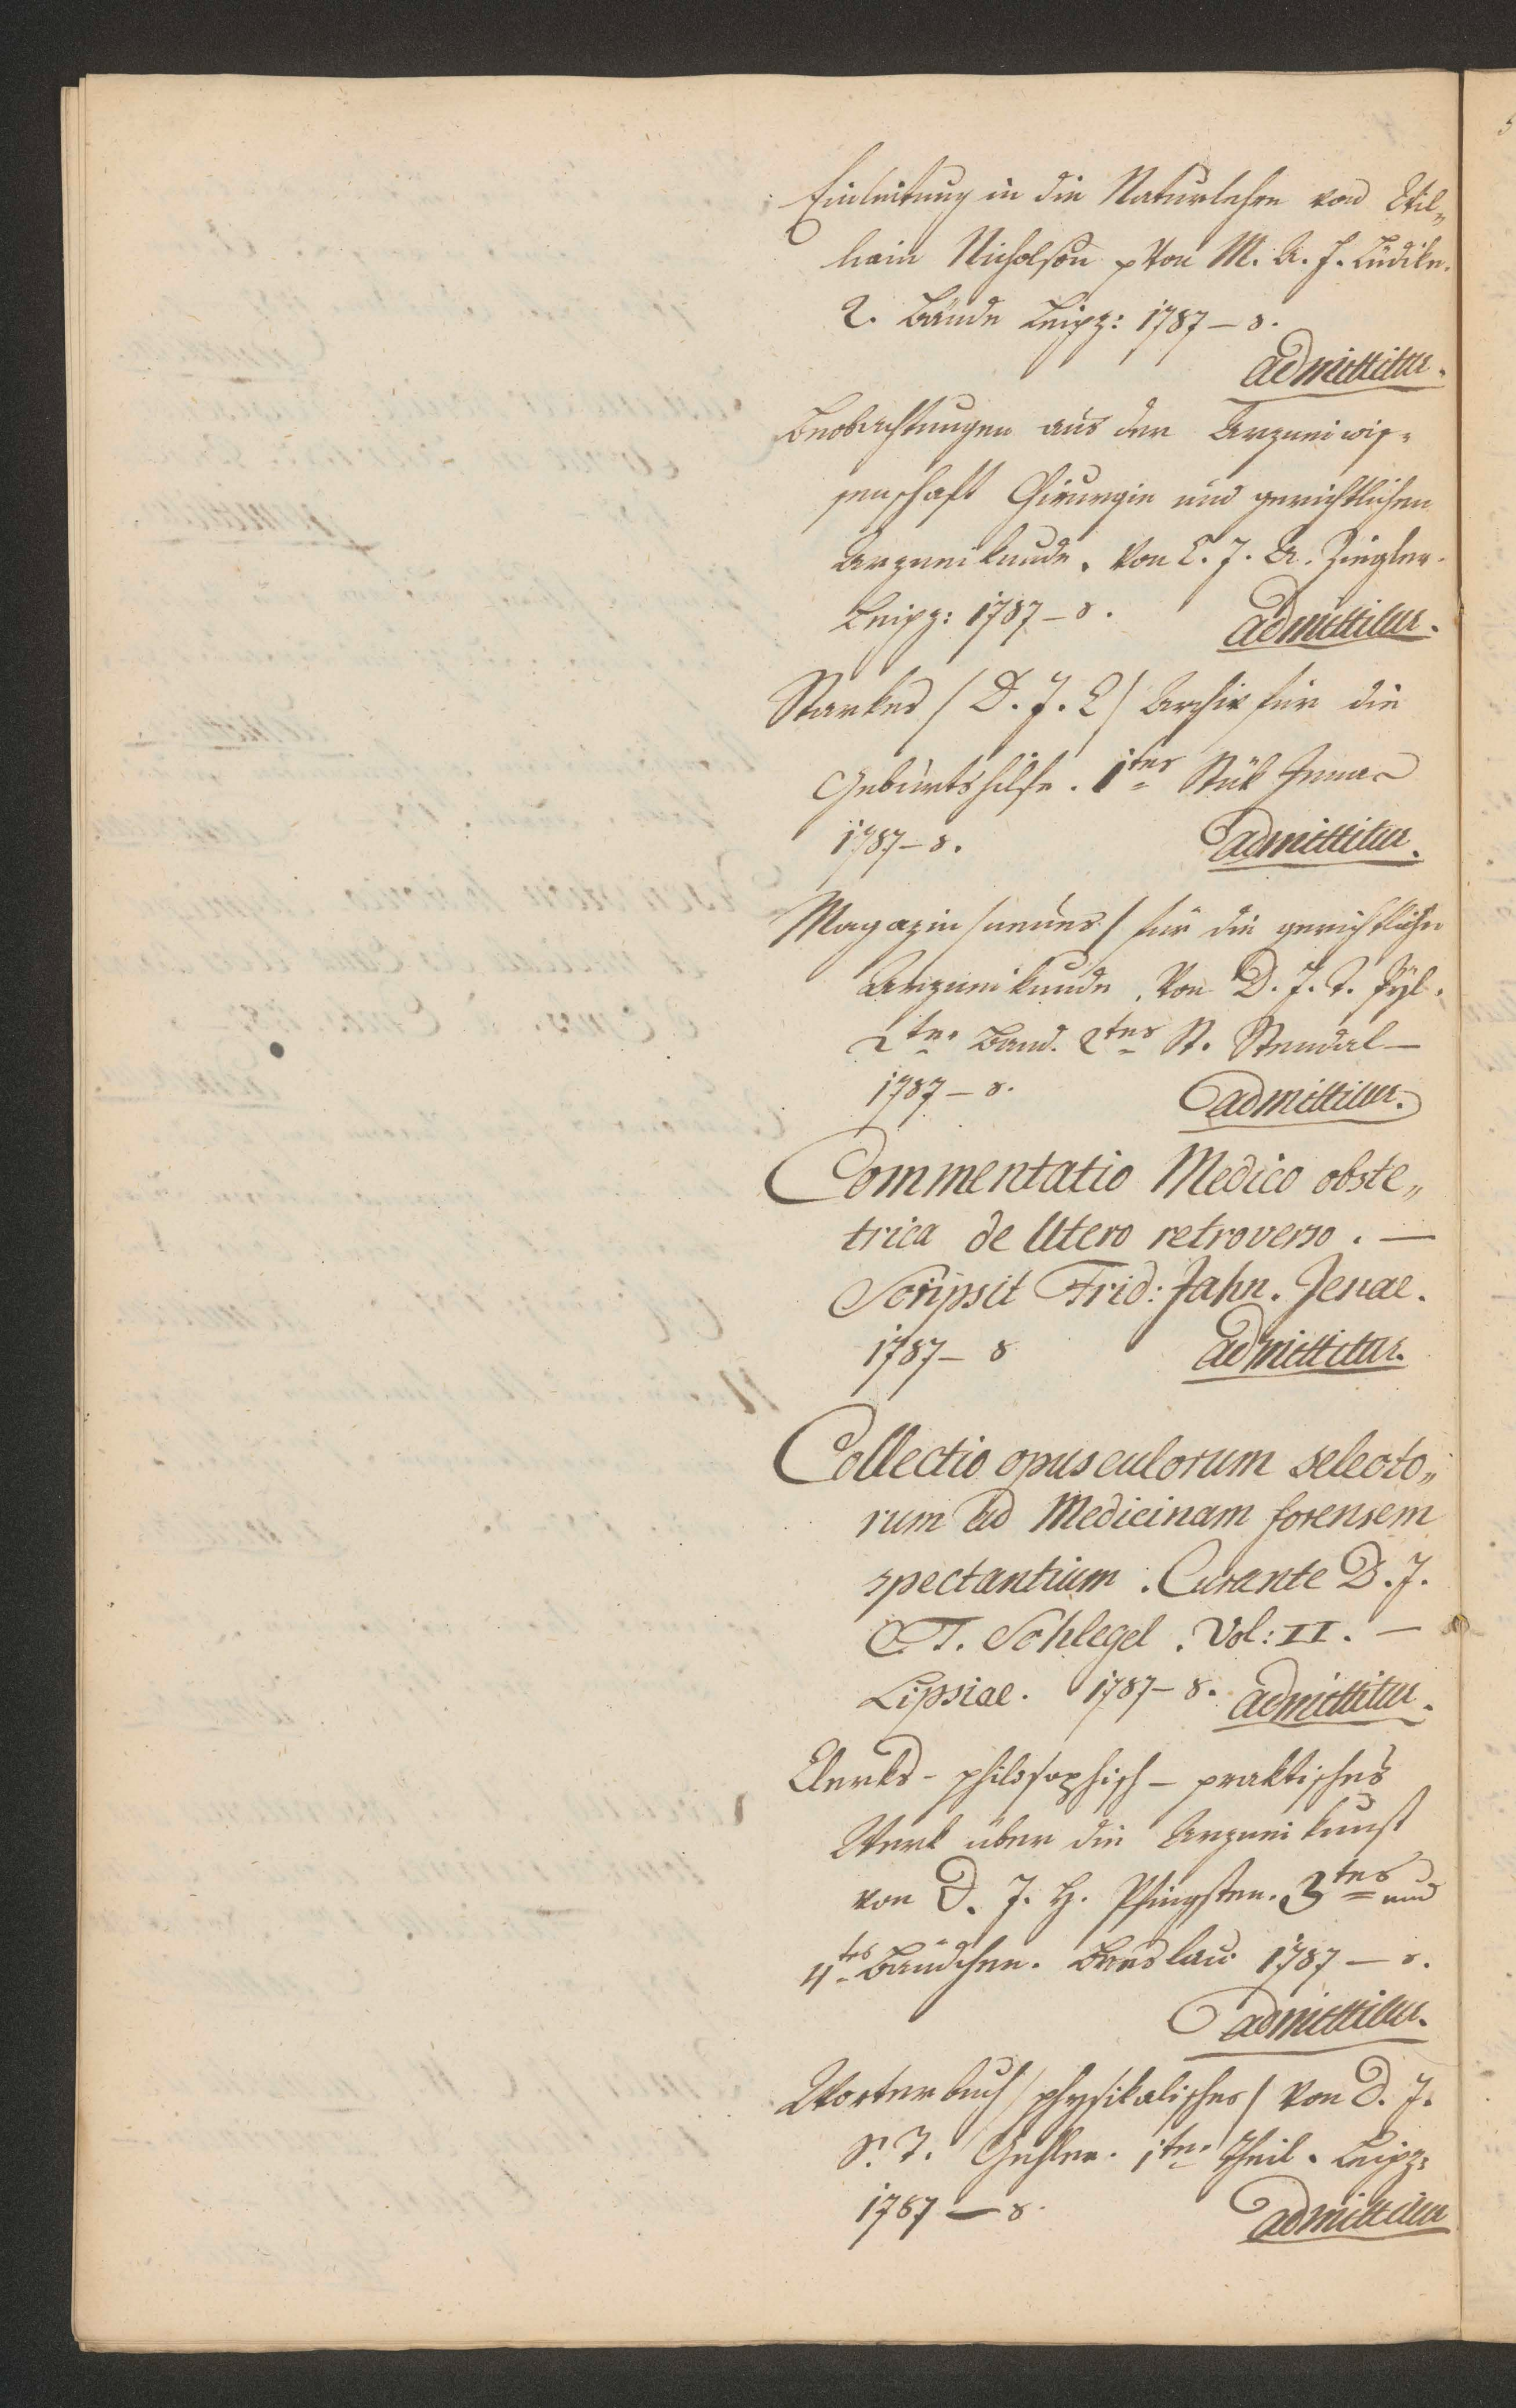 Einleitung in die Naturlehre von Wil„
heim Nicholson p Von M. A. F. Lüdike.
2. Bände Leipz: 1787 – 8.
admittitur.
Beobachtungen aus der Arzneiwis-
senschaft Chirurgie und gerichtlichen
Arzneikunde. Von C. J. A. Ziegler.
Leipz: 1787 – 8.
admittitur.
Starkes / D. J. C / Archiv für die
Geburtshilfe. 1tes Stük Jenae
1787 – 8.
admittitur.
Magazin / neues / für die gerichtliche
Arzneikunde. Von D. J. T. Pyl.
2ter Band. 2tes St. Stendal –
1787 – 8.
admittitur.
Commentatio Medico obste„
trica de Utero retroverso. –
Scripsit Frid: Jahn. Jenae.
1787 – 8
admittitur.
Collectio opusculorum selecto„
rum ad Medicinam forensem
spectantium. Curante D. J.
C. T. Schlegel. Vol: II. –
Lipsiae. 1787 – 8. admittitur.
Clerks – philosophisch – praktisches
Werk über die Arzneikunst
von D. J. H. Pfingsten. 3tes und
4tes Bändchen. Breslau 1787 – 8.
admittitur.
Worterbuch / physikalisches / Von D. J.
S. T. Gehler. 1ter Theil. Leipz:
1787 – 8.
admittitur